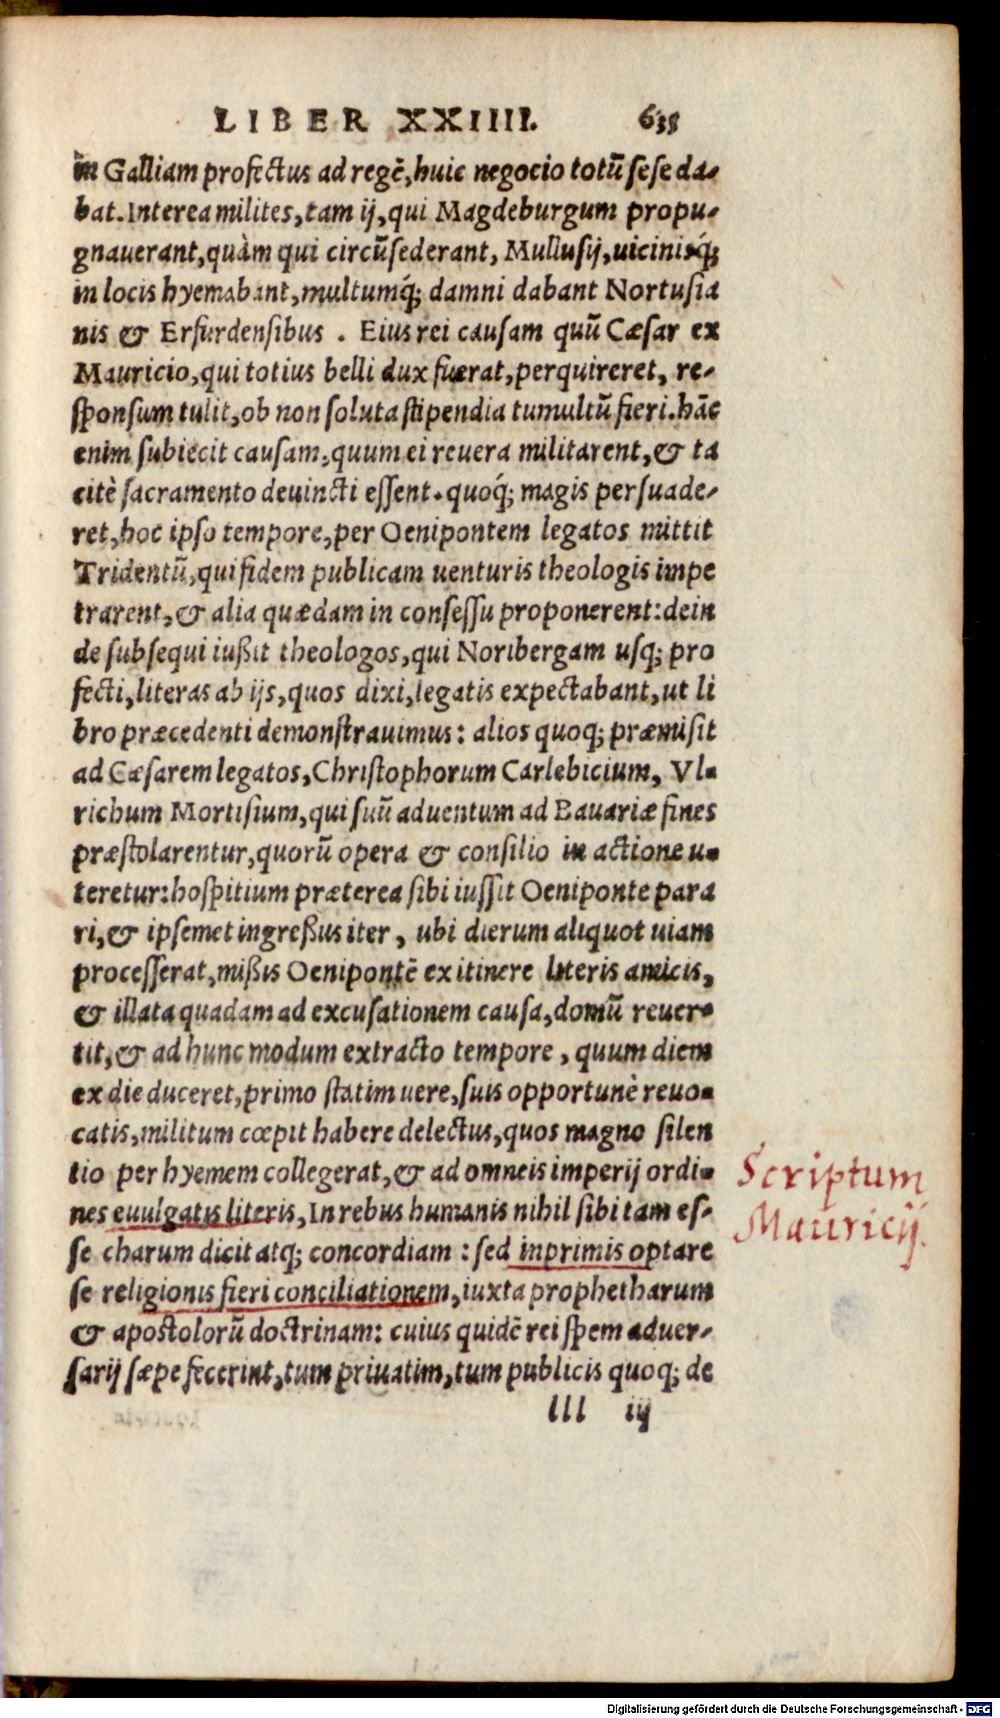 LIBER XXIIII. 635
in Galliam profectus ad regē, huic negocio totū sese da-
bat. Interea milites, tam ij, qui Magdeburgum propu-
gnauerant, quàm qui circūsederant, Mullusij, uicinisq́;
in locis hyemabant, multumq́; damni dabant Nortusia
nis & Erfurdensibus. Eius rei causam quū Cæsar ex
Mauricio, qui totius belli dux fuerat, perquireret, re-
sponsum tulit, ob non soluta stipendia tumultū fieri. hāc
enim subiecit causam, quum ei reuera militarent, & ta
citè sacramento deuincti essent. quoq́; magis persuade-
ret, hoc ipso tempore, per Oenipontem legatos mittit
Tridentū, qui fidem publicam uenturis theologis impe
trarent, & alia quædam in consessu proponerent: dein
de subsequi iußit theologos, qui Noribergam usq; pro
fecti, literas ab ijs, quos dixi, legatis expectabant, ut li
bro præcedenti demonstrauimus: alios quoq; præmisit
ad Cæsarem legatos, Christophorum Carlebicium, Vl-
richum Mortisium, qui suū aduentum ad Bauariæ fines
præstolarentur, quorū opera & consilio in actione u-
teretur: hospitium præterea sibi iussit Oeniponte para
ri, & ipsemet ingreßus iter, ubi dierum aliquot uiam
processerat, mißis Oenipontē ex itinere literis amicis,
& illata quadam ad excusationem causa, domū reuer-
tit, & ad hunc modum extracto tempore, quum diem
ex die duceret, primo statim uere, suis opportunè reuo-
catis, militum cœpit habere delectus, quos magno silen
tio per hyemem collegerat, & ad omneis imperij ordi-
nes euulgatis literis, In rebus humanis nihil sibi tam es-
se charum dicit atq; concordiam: sed inprimis optare
se religionis fieri conciliationem, iuxta prophetharum
& apostolorū doctrinam: cuius quidē rei spem aduer-
sarij sæpe fecerint, tum priuatim, tum publicis quoq; de
lll iij
Scriptum
Mauricij.
Digitalisierung gefördert durch die Deutsche Forschungsgemeinschaft - DFG